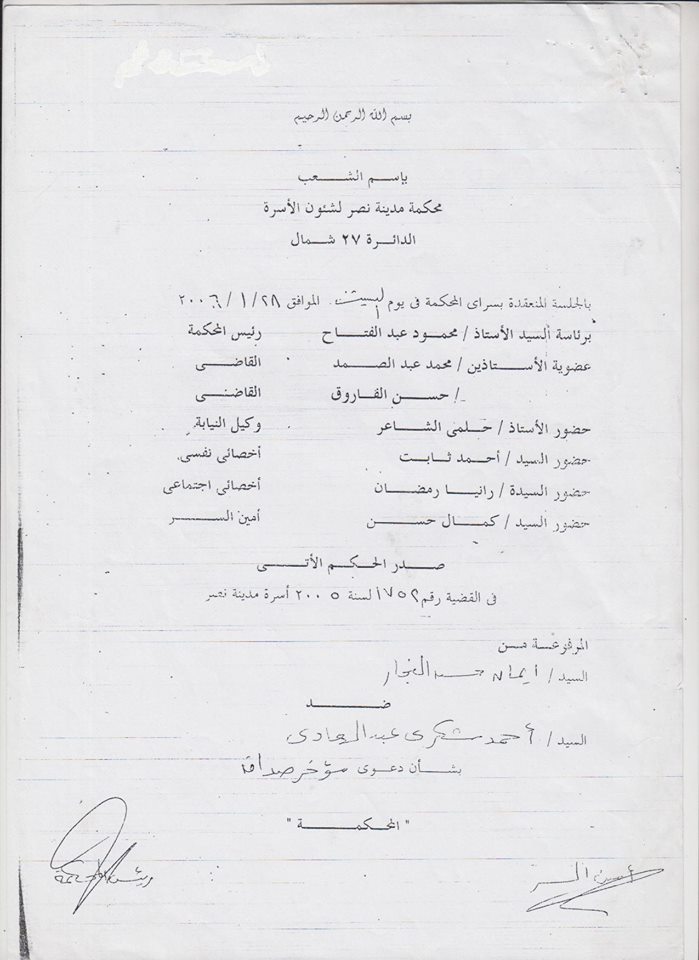 بسم الله الرحمن الرحيم
بإسم الشعب
محكمة مدينة نصر لشئون الأسرة
الدائرة ٢٧ شمال
بالجلسة المنعقدة بسراى المحكمة فى يوم السبت الموافق ٢٨ / ١ / ٢٠٠٦
برئاسة السيد الأستاذ / محمود عبد الفتاح رئيس المحكمة
عضوية الأستاذين / محمد عبد الصمد القاضى
/ حسن الفاروق القاضى
حضور الأستاذ / حلمى الشاعر وكيل النيابة
حضور السيد / أحمد ثابت أخصائى نفسى
حضور السيدة / رانيا رمضان أخصائى اجتماعى
حضور السيد / كمال حسن أمين السر
صدر الحكم الأتى
فى القضية رقم ١٧٥٢ لسنة ٢٠٠٥ أسرة مدينة نصر
المرفوعة من
السيد / ايمان حسن النجار
ضد
السيد / أحمد شكرى عبد الهادى
بشأن دعوى مؤخر صداق
" المحكمة "
أمين السر
رئيس المحكمة